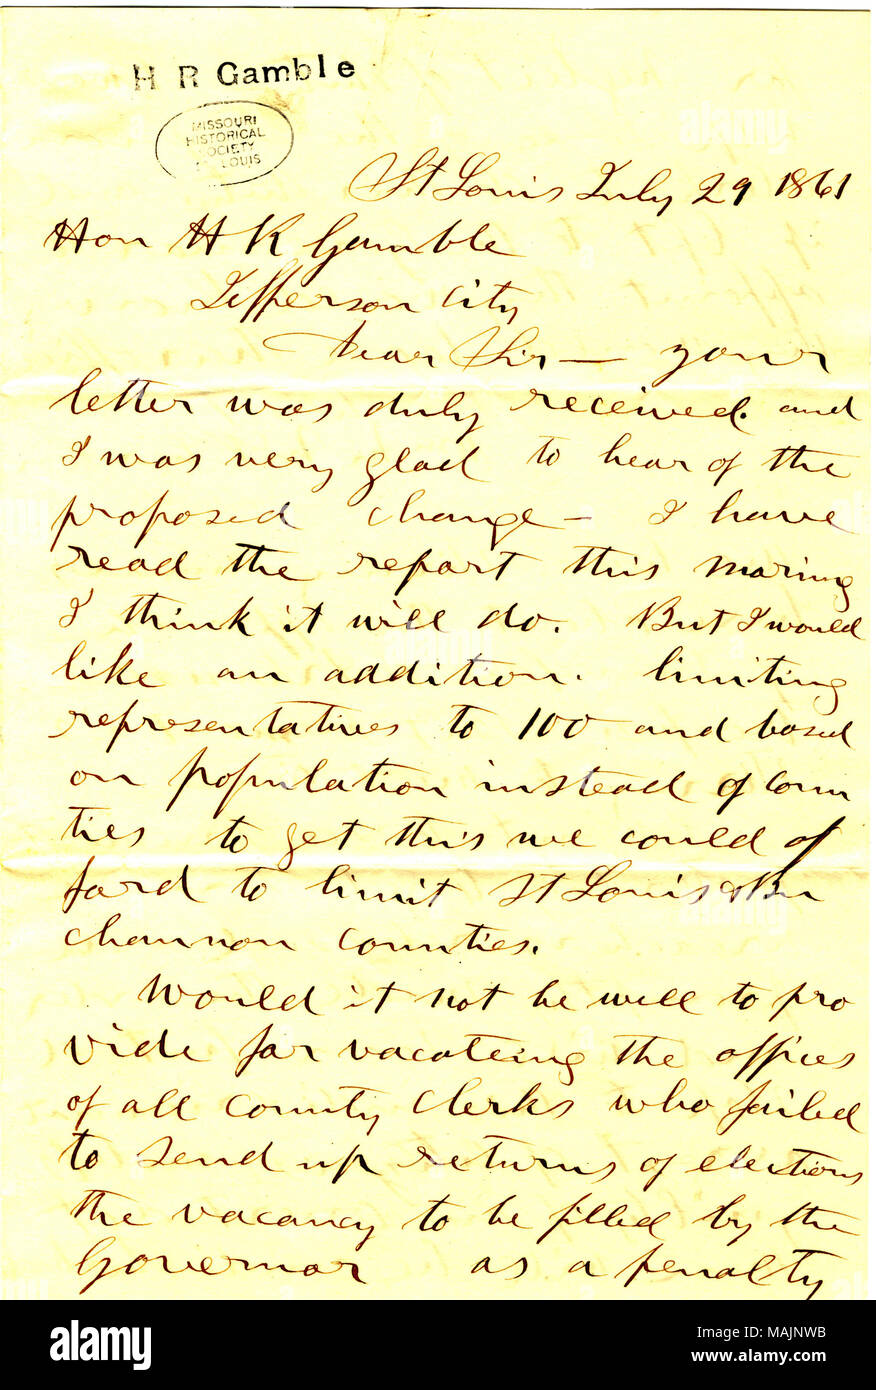 H R Gamble
MISSOURI
HISTORICAL
SOCIETY
ST LOUIS
St Louis July 29 1861
Hon H R Gamble
Jefferson City
Dear Sir — your
letter was duly received. and
I was very glad to hear of the
proposed change — I have
read the report this morning
I think it will do. But I would
like an addition. limiting
representatives to 100 and based
on population instead of Coun
ties to get this we could af
ford to limit St Louis & Bu
channon counties.
Would it not be well to pro
vide for vacateing the offices
of all County Clerks who failed
to send up returns of elections
the vacancy to be filled by the
Governor as a penalty
alamy
Image ID: MAJNWB
www.alamy.com